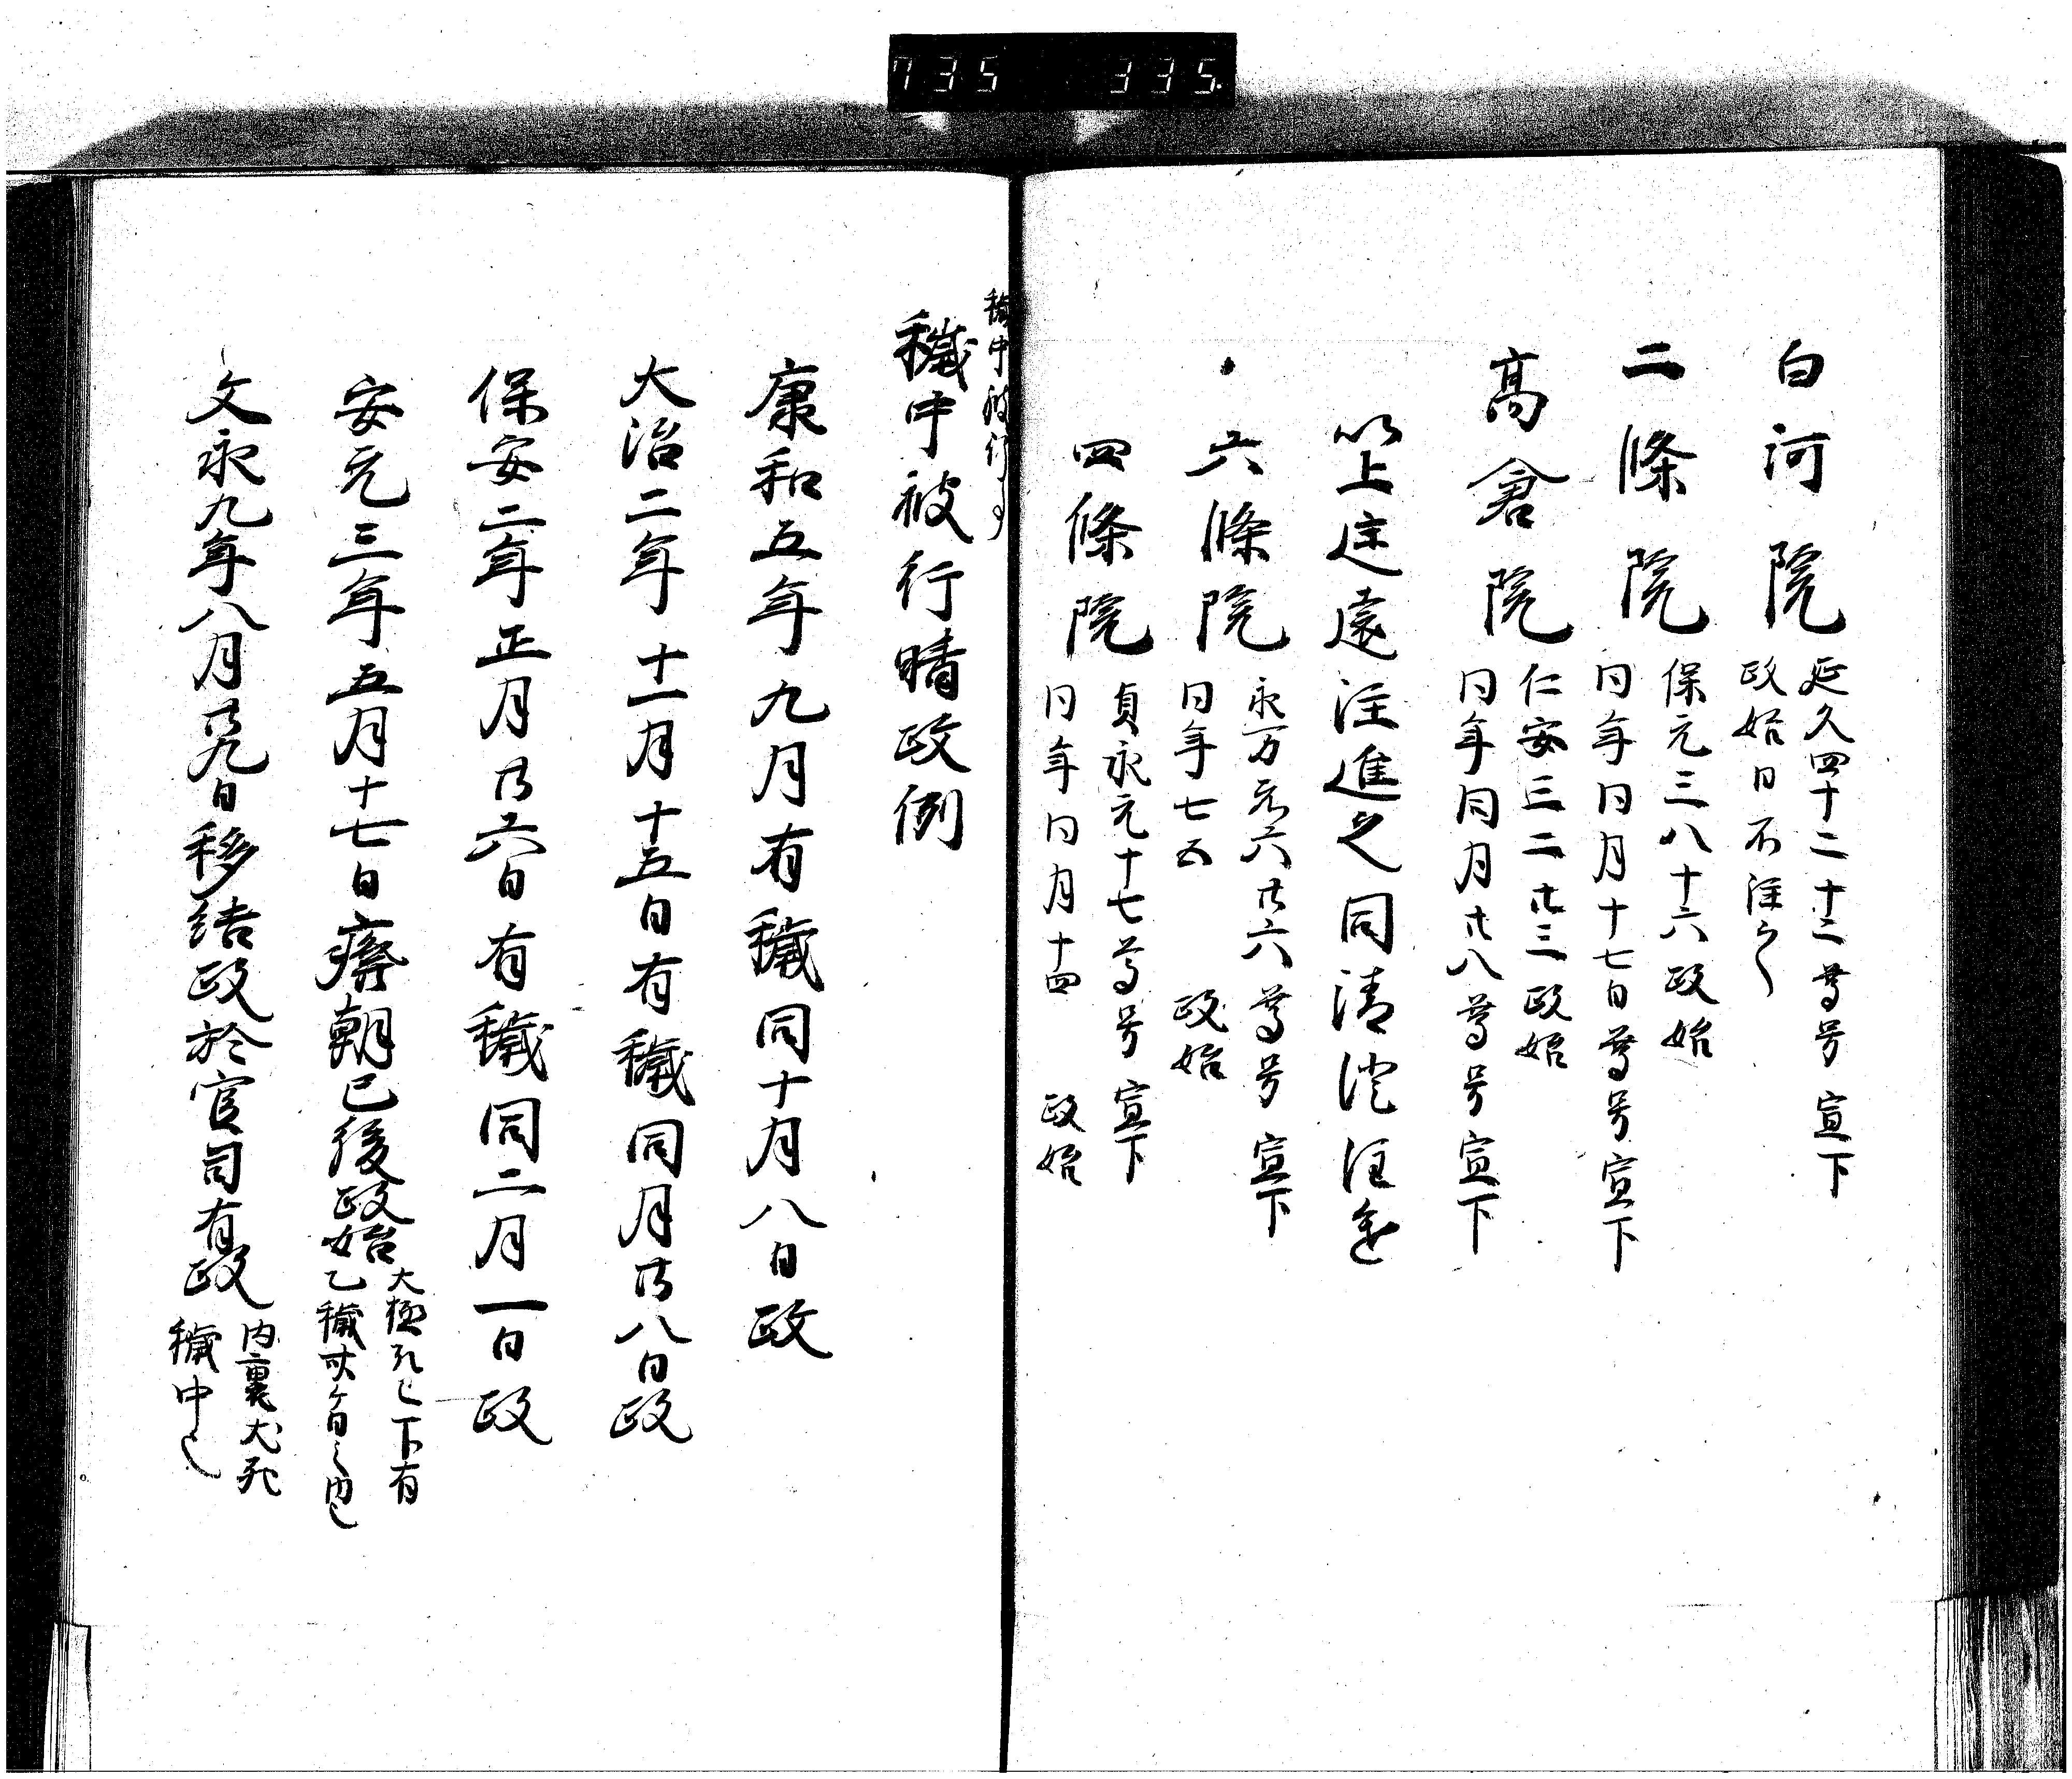 735 335.
白河院
延久四十二十二尊号宣下
政始日不注之
二條院
保元三八十六政始
同年同月十七日尊号宣下
高倉院
仁安三二廿三政始
同年同月廿八尊号宣下
以上遠注進之同清注進
六條院
永万元六廿六尊号宣下
同年七五 政始
四條院
貞永元十七尊号宣下
同年同月十四 政始
穢中被行事
穢中被行晴政例
康和五年九月有穢同十月八日政
大治二年十一月十五日有穢同月廿八日政
保安二年正月廿六日有穢同二月一日政
安元三年五月十七日癈朝已後政始
大極殿已下有
乙穢卅ケ日之内也
文永九年八月廿九日移結政於官司有政
内裏犬死
穢中也